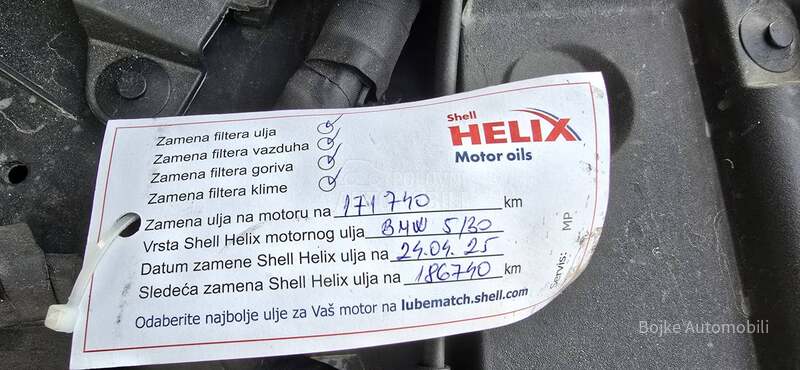 Shell
HELIX
Motor oils
Zamena filtera ulja
Zamena filtera vazduha
Zamena filtera goriva
Zamena filtera klime
Zamena ulja na motoru na 171740 km
Vrsta Shell Helix motornog ulja BMW 5/30
Datum zamene Shell Helix ulja na 24.04.25
Sledeća zamena Shell Helix ulja na 186740 km
Odaberite najbolje ulje za Vaš motor na lubematch.shell.com
servis: MP
Bojke Automobili